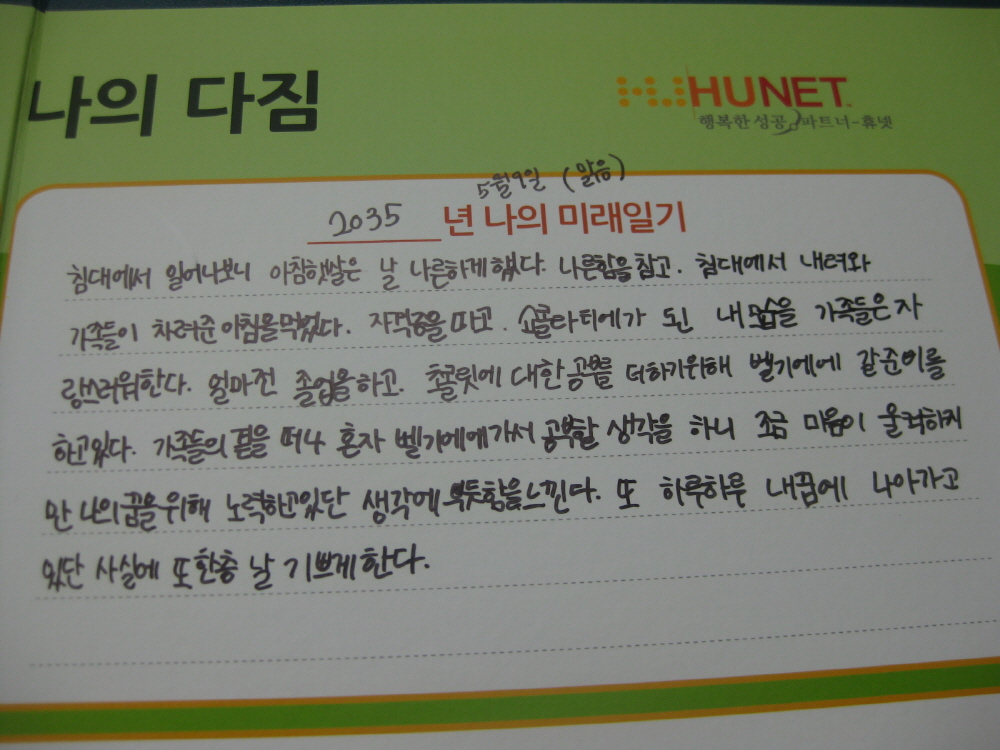 나의 다짐
HUNET
행복한 성공 파트너-휴넷
5월9일 (맑음)
2035 년 나의 미래일기
침대에서 일어나보니 아침햇살은 날 나른하게 했다. 나른함을 참고. 침대에서 내려와
가족들이 차려준 아침을 먹었다. 자격증을 따고. 쇼콜라티에가 된 내 모습을 가족들은 자
랑스러워한다. 얼마전 졸업을 하고. 초콜릿에 대한 공부를 더하기위해 벨기에에 갈준비를
하고있다. 가족들의 곁을 떠나 혼자 벨기에에가서 공부할 생각을 하니 조금 마음이 울적하지
만 나의 꿈을 위해 노력하고있단 생각에 뿌듯함을 느낀다. 또 하루하루 내꿈에 나아가고
있단 사실에 또한층 날 기쁘게한다.